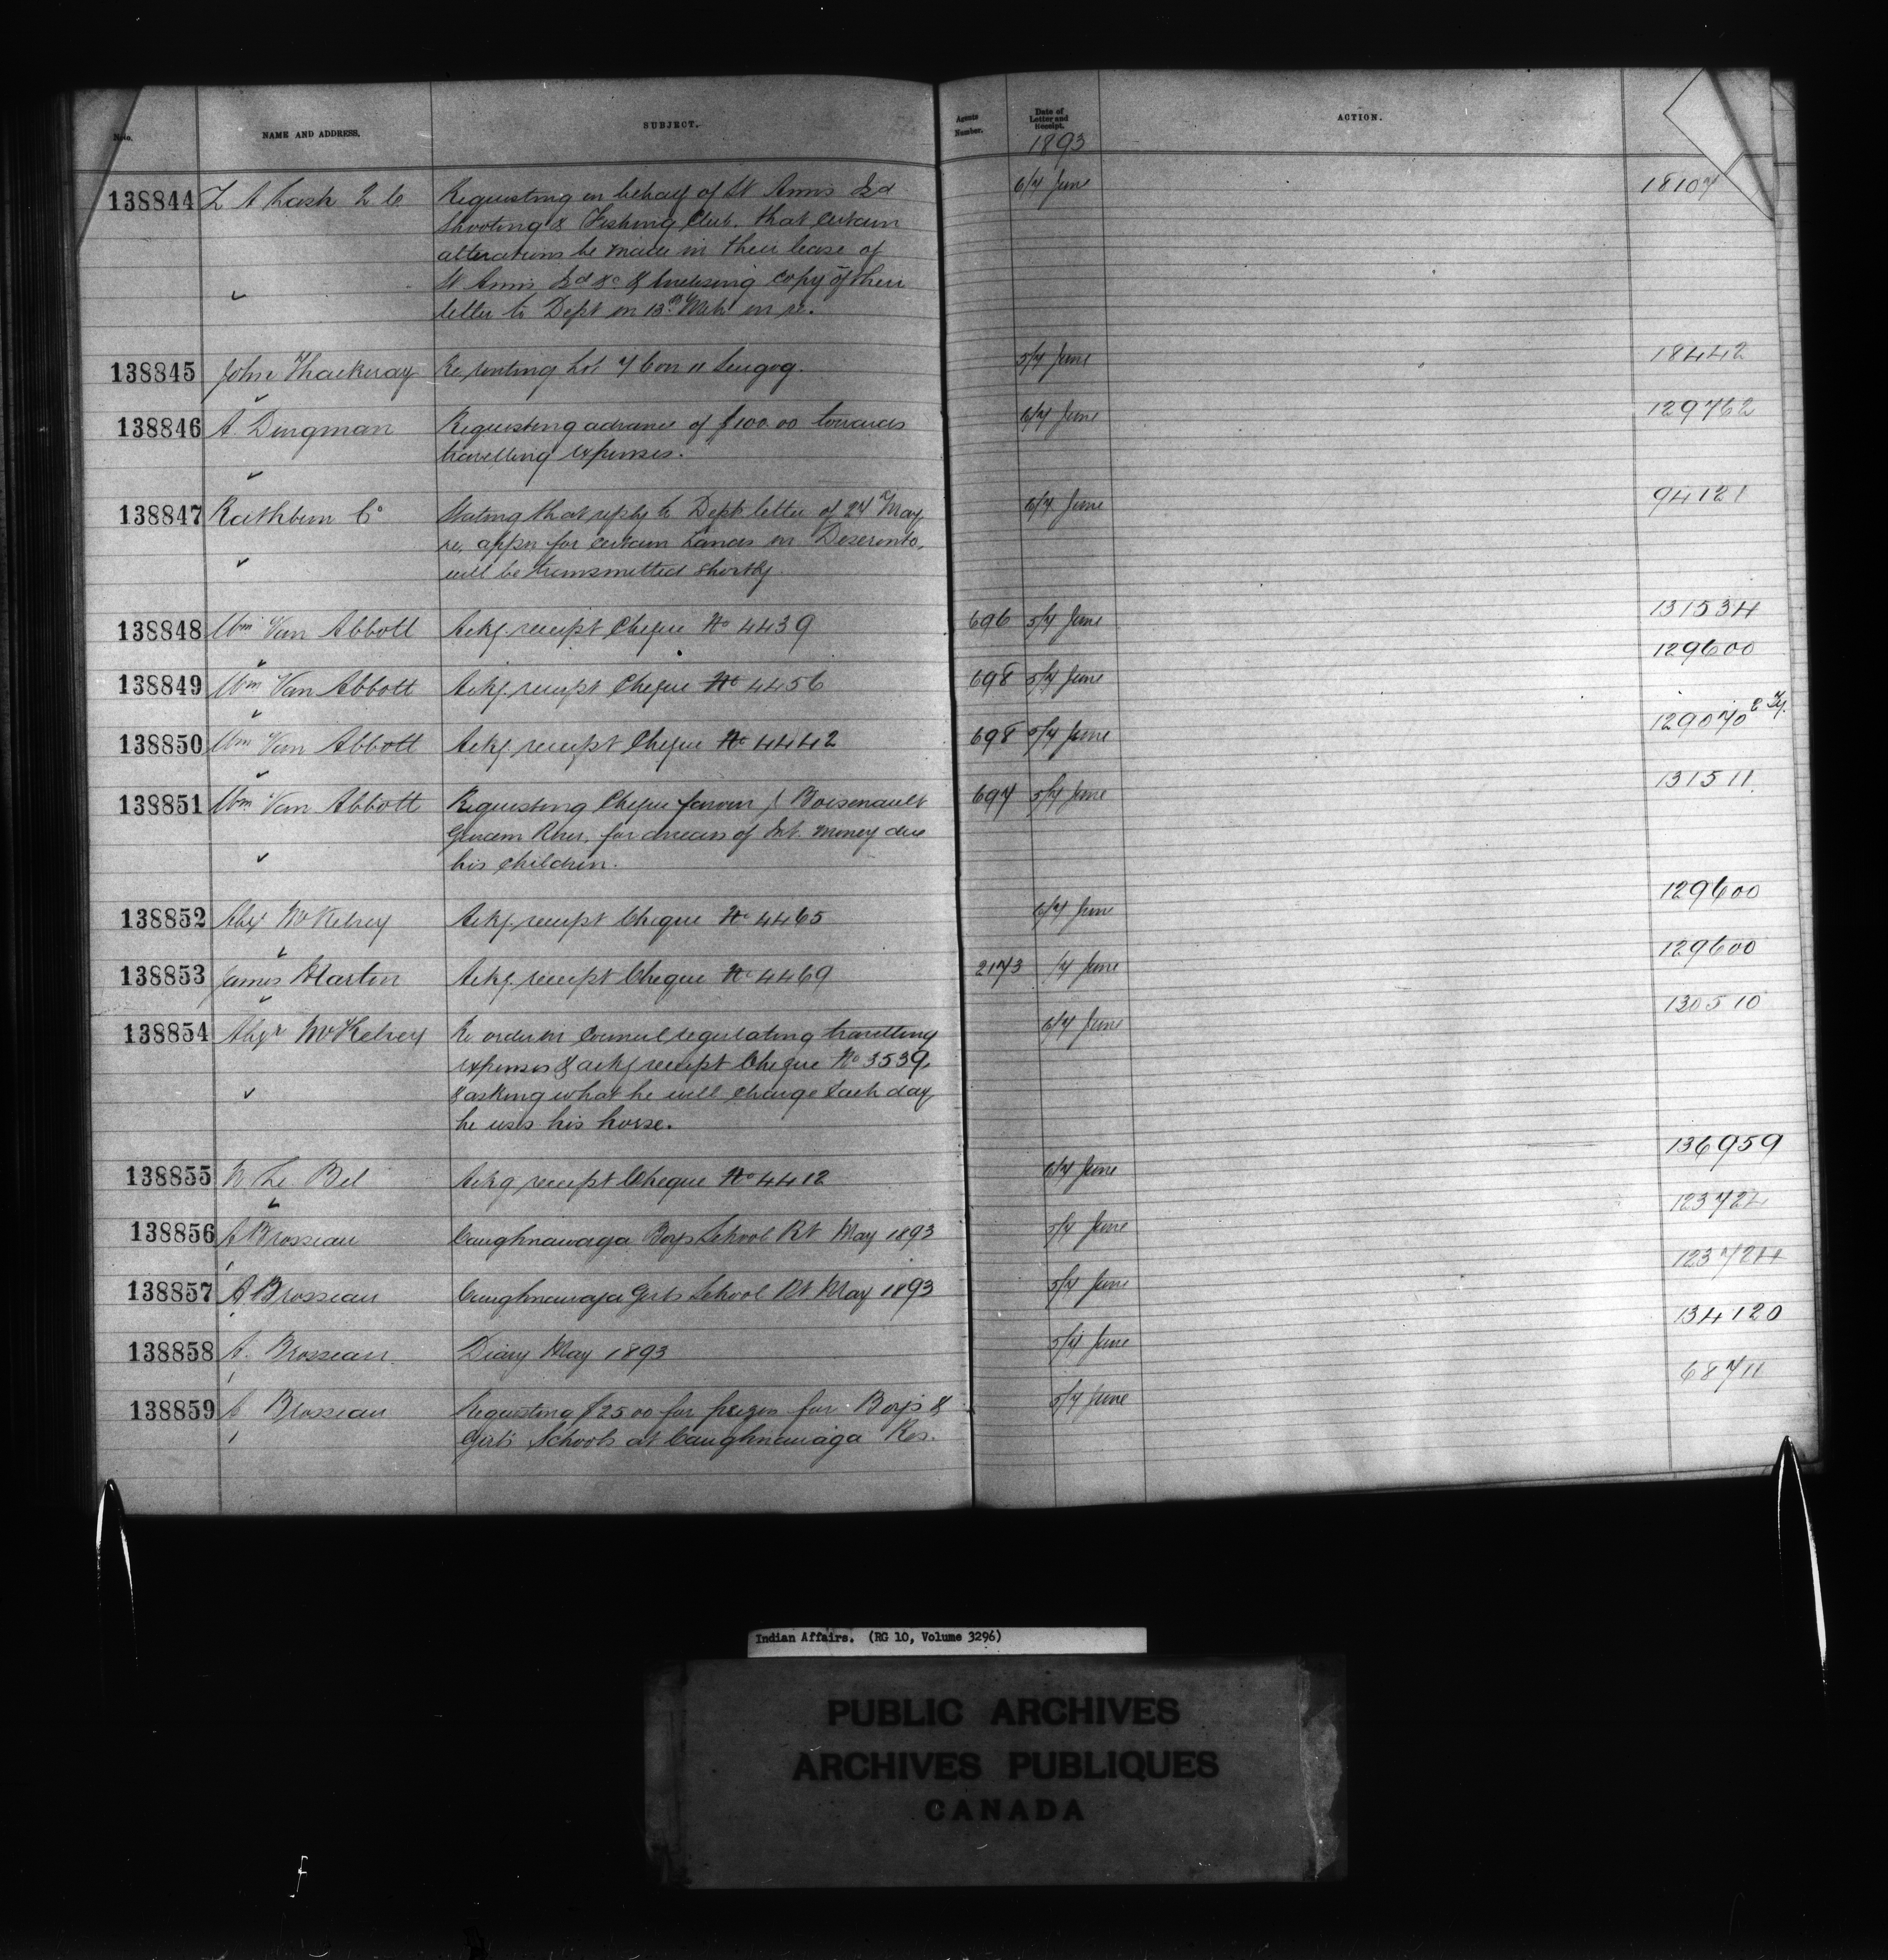 Nos. NAME AND ADDRESS. SUBJECT. Agents Number. Date of Letter and Receipt. ACTION.
1893
138844 Z A Lash Q C. Requesting on behalf of St Anns Isd 6/7 June 18107
Shooting & Fishing Club. that certain
alterations be made in their lease of
St Anns Isd &c & Enclosing copy of their
letter to Dept on 13th Mch in re.
138845 John Thackeray Re renting Lot 7 Con 11 Scugog. 5/7 June 18442
138846 A. Dingman Requesting advance of $100.00 towards 6/7 June 129762
travelling expenses.
138847 Rathbun Co Stating that reply to Dept letter of 24th May 6/7 June 94121
re. appn for certain Lands in Deseronto,
will be transmitted shortly.
138848 Wm Van Abbott Ackg. receipt Cheque No 4439 696 5/7 June 131534
138849 Wm Van Abbott Ackg. receipt Cheque No 4456 698 5/7 June 129600
138850 Wm Van Abbott Ackg. receipt Cheque No 4442 698 5/7 June 129070
138851 Wm Van Abbott Requesting Cheque favour J Boisenault 697 5/7 June 131511.
Garden River, for arrears of Int. money due
his children.
138852 Alex McKelvey Ackg. receipt Cheque No 4465 6/7 June 129600
138853 James Martin Ackg. receipt Cheque No 4469 2173 /7 June 129600
138854 Alexr McKelvey Re order in Council regulating travelling 6/7 June 130510
expenses & ackg receipt Cheque No 3539,
& asking what he will charge Each day
he uses his horse.
138855 N. Le Bel Ackg receipt Cheque No 4412 6/7 June 136959
138856 A Brosseau Caughnawaga Boys School Rt May 1893 5/7 June 123724
138857 A Brosseau Caughnawaga Girls School Rt May 1893 5/7 June 123724
138858 A. Brosseau Diary May 1893 5/7 June 134120
138859 A Brosseau Requesting $25.00 for prizes for Boys & 5/7 June 68711
Girls Schools at Caughnawaga Res.
Indian Affairs. (RG 10, Volume 3296)
PUBLIC ARCHIVES
ARCHIVES PUBLIQUES
CANADA